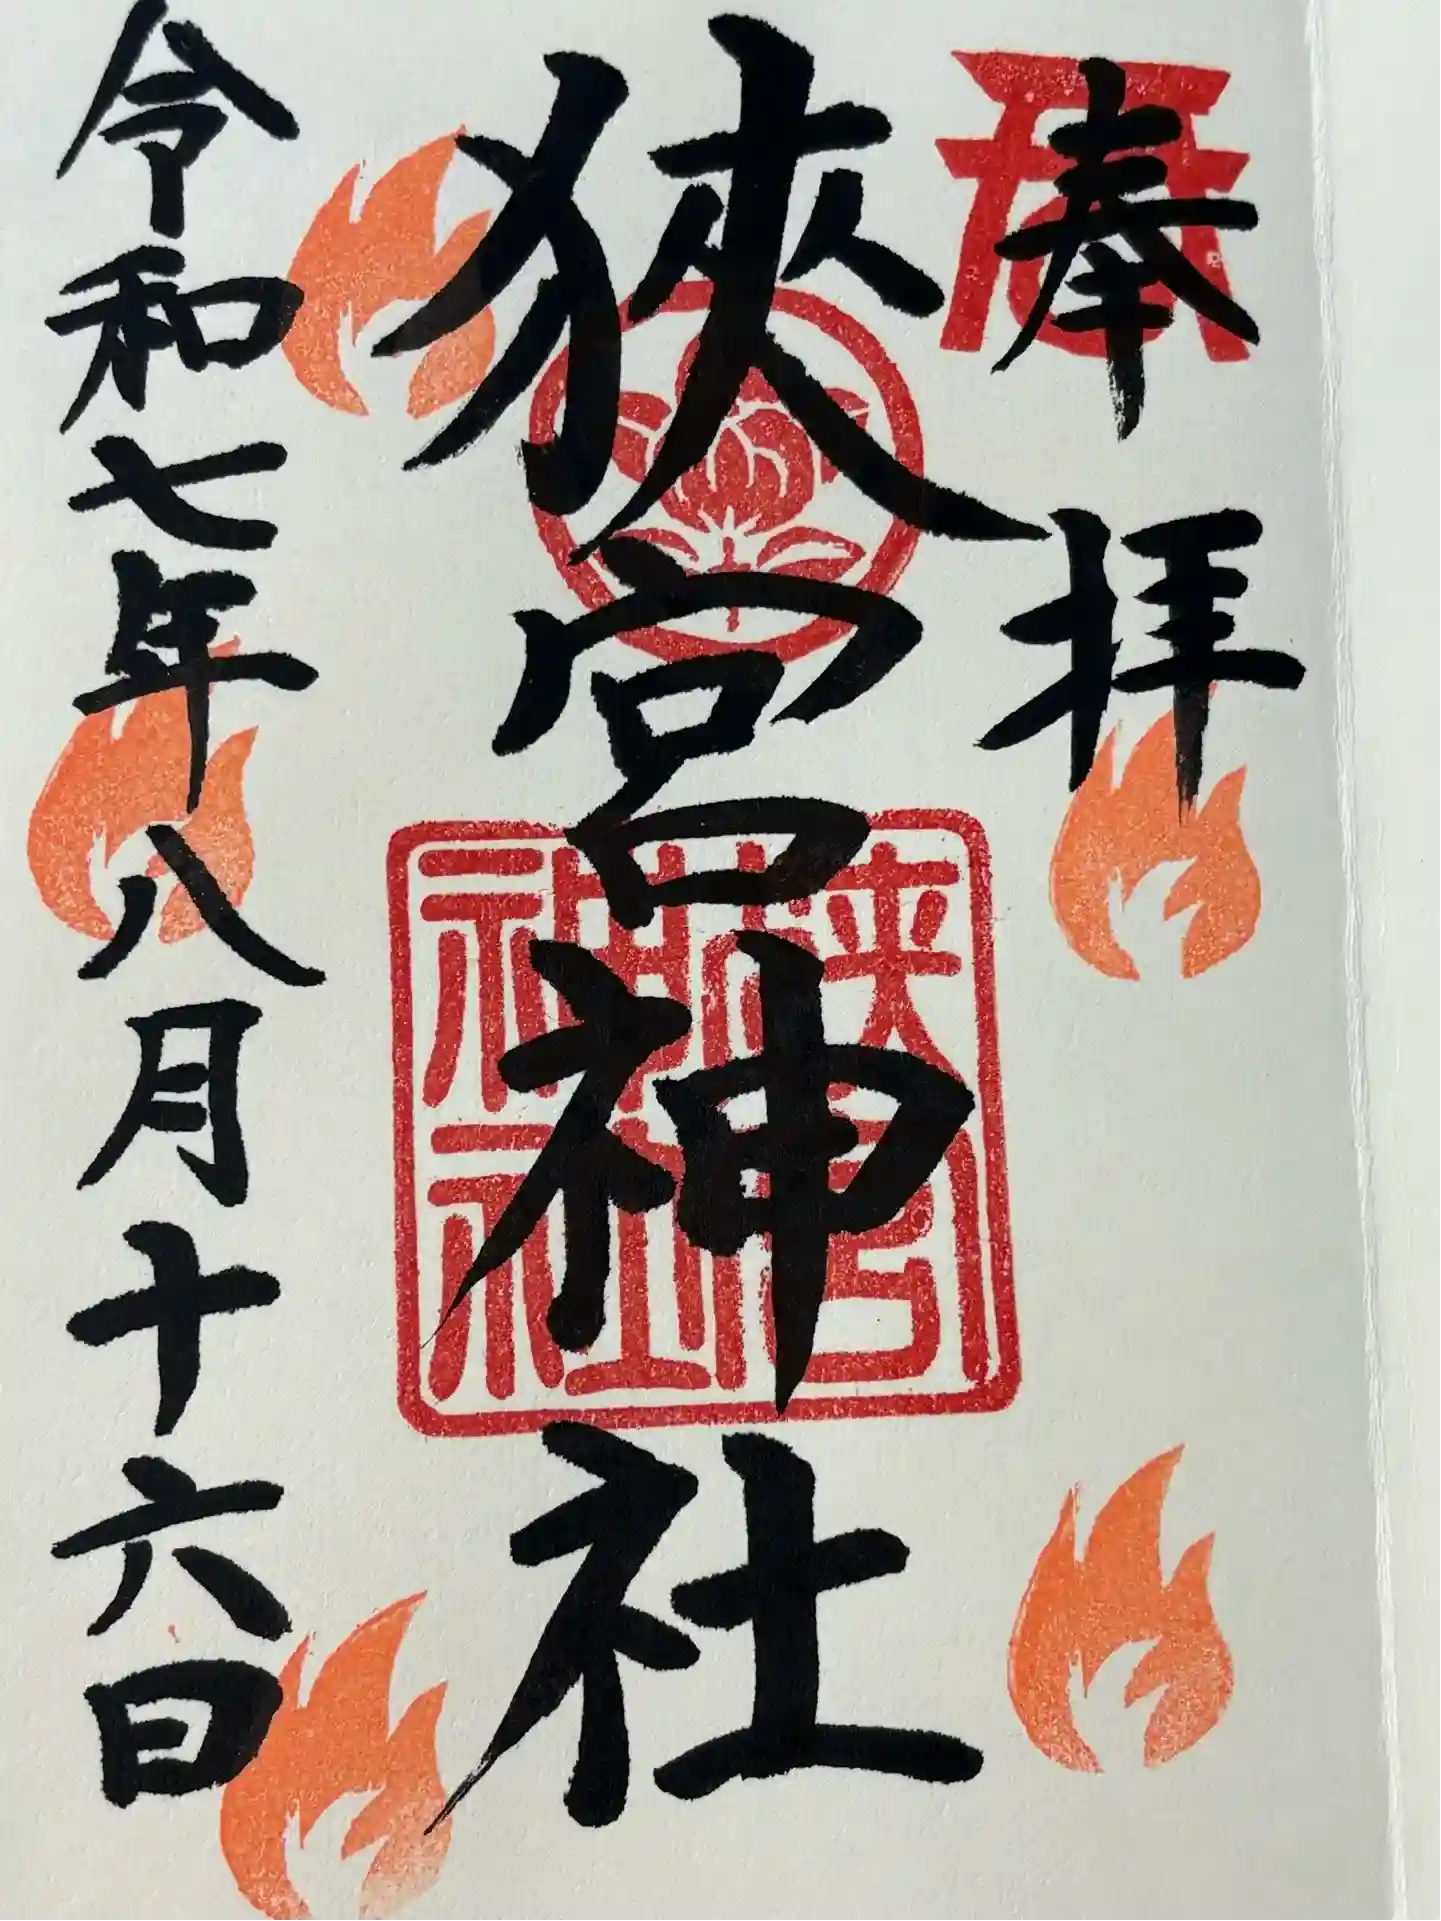 奉拝
狹宮神社
狭宮神社
令和七年八月十六日